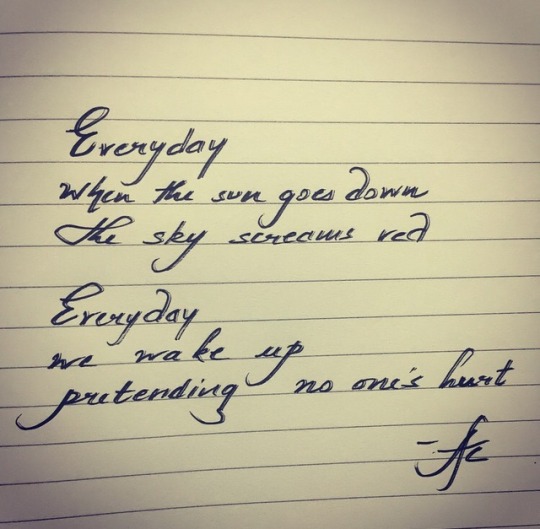 Everyday
when the sun goes down
the sky screams red
Everyday
we wake up
pretending no one's hurt